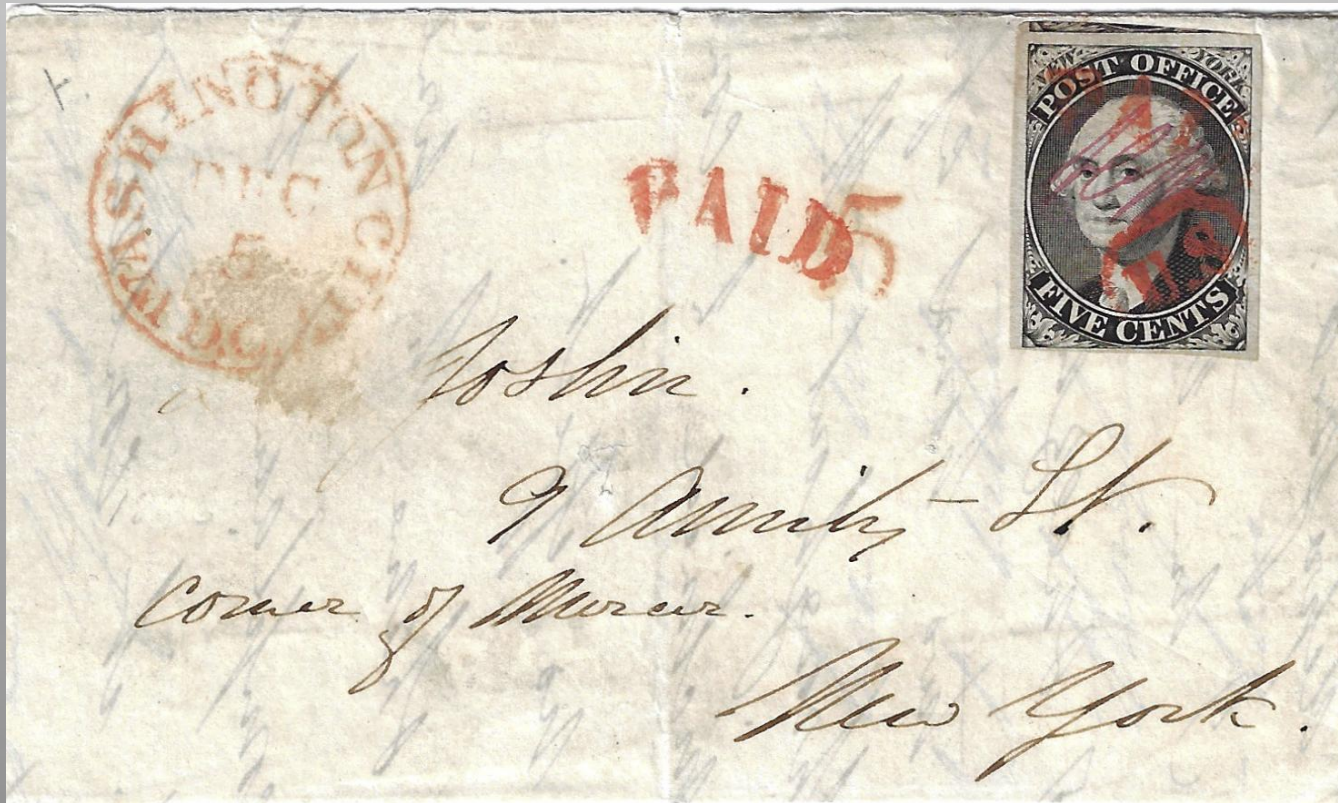 WASHINGTON CITY D.C.
DEC
5
PAID
5
NEW YORK
POST OFFICE
FIVE CENTS
Joslin.
9 Amity St.
Corner of Mercer.
New York.